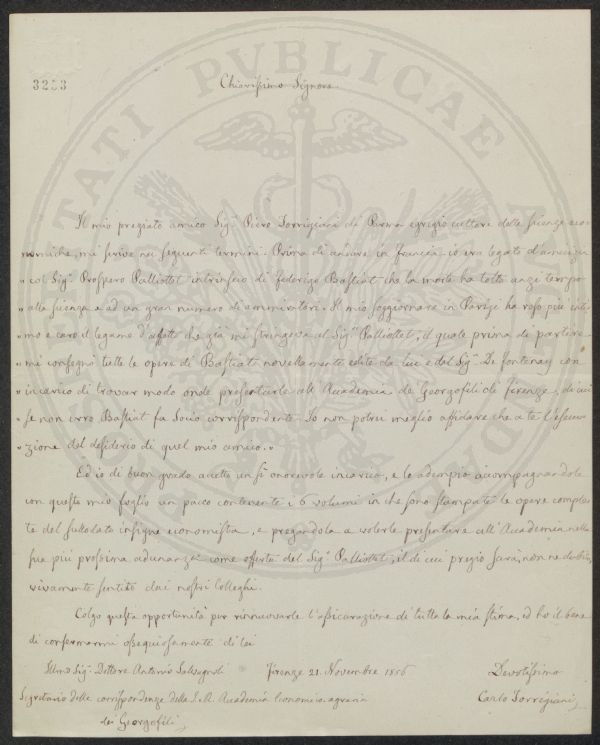 3253
Chiarissimo Signore
Il mio pregiato amico Sig.r Piero Torrigiani di Parma egregio cultore delle scienze eco=
nomiche, mi scrive nei seguenti termini. Prima di andare in Francia io era legato d'amicizia
" col Sig.r Prospero Palliottet intrinseco di Federigo Bastiat che la morte ha tolto anzi tempo
" alla scienza e ad un gran numero di ammiratori. Il mio soggiornare in Parigi ha reso più inti=
" mo e caro il legame d'affetto che già mi stringeva al Sig.r Palliottet, il quale prima di partire
" mi consegnò tutte le opere di Bastiat novellamente edite da lui e dal Sig.r De fontenay con
" incarico di trovar modo onde presentarle all'Accademia de' Georgofili di Firenze, di cui
" se non erro Bastiat fu Socio corrispondente. Io non potrei meglio affidare che a te l'esecu=
" zione del desiderio di quel mio amico. "
Ed io di buon grado accetto un sì onorevole incarico, e lo adempio accompagnandole
con questo mio foglio un pacco contenente i 6 volumi in che sono stampate le opere comple=
te del sullodato insigne economista, e pregandola a volerle presentare all'Accademia nella
sua più prossima adunanza come offerte del Sig.r Palliottet, il di cui pregio sarà, non ne dubito,
vivamente sentito dai nostri Colleghi.
Colgo questa opportunità per rinnuovarle l'assicurazione di tutta la mia stima, ed ho il bene
di confermarmi ossequiosamente di lei
Illmo Sig.r Dottore Antonio Salvagnoli
Firenze 21. Novembre 1856
Devotissimo
Segretario delle corrispondenze della I. R. Accademia Economico-agraria
Carlo Torrigiani
dei Georgofili